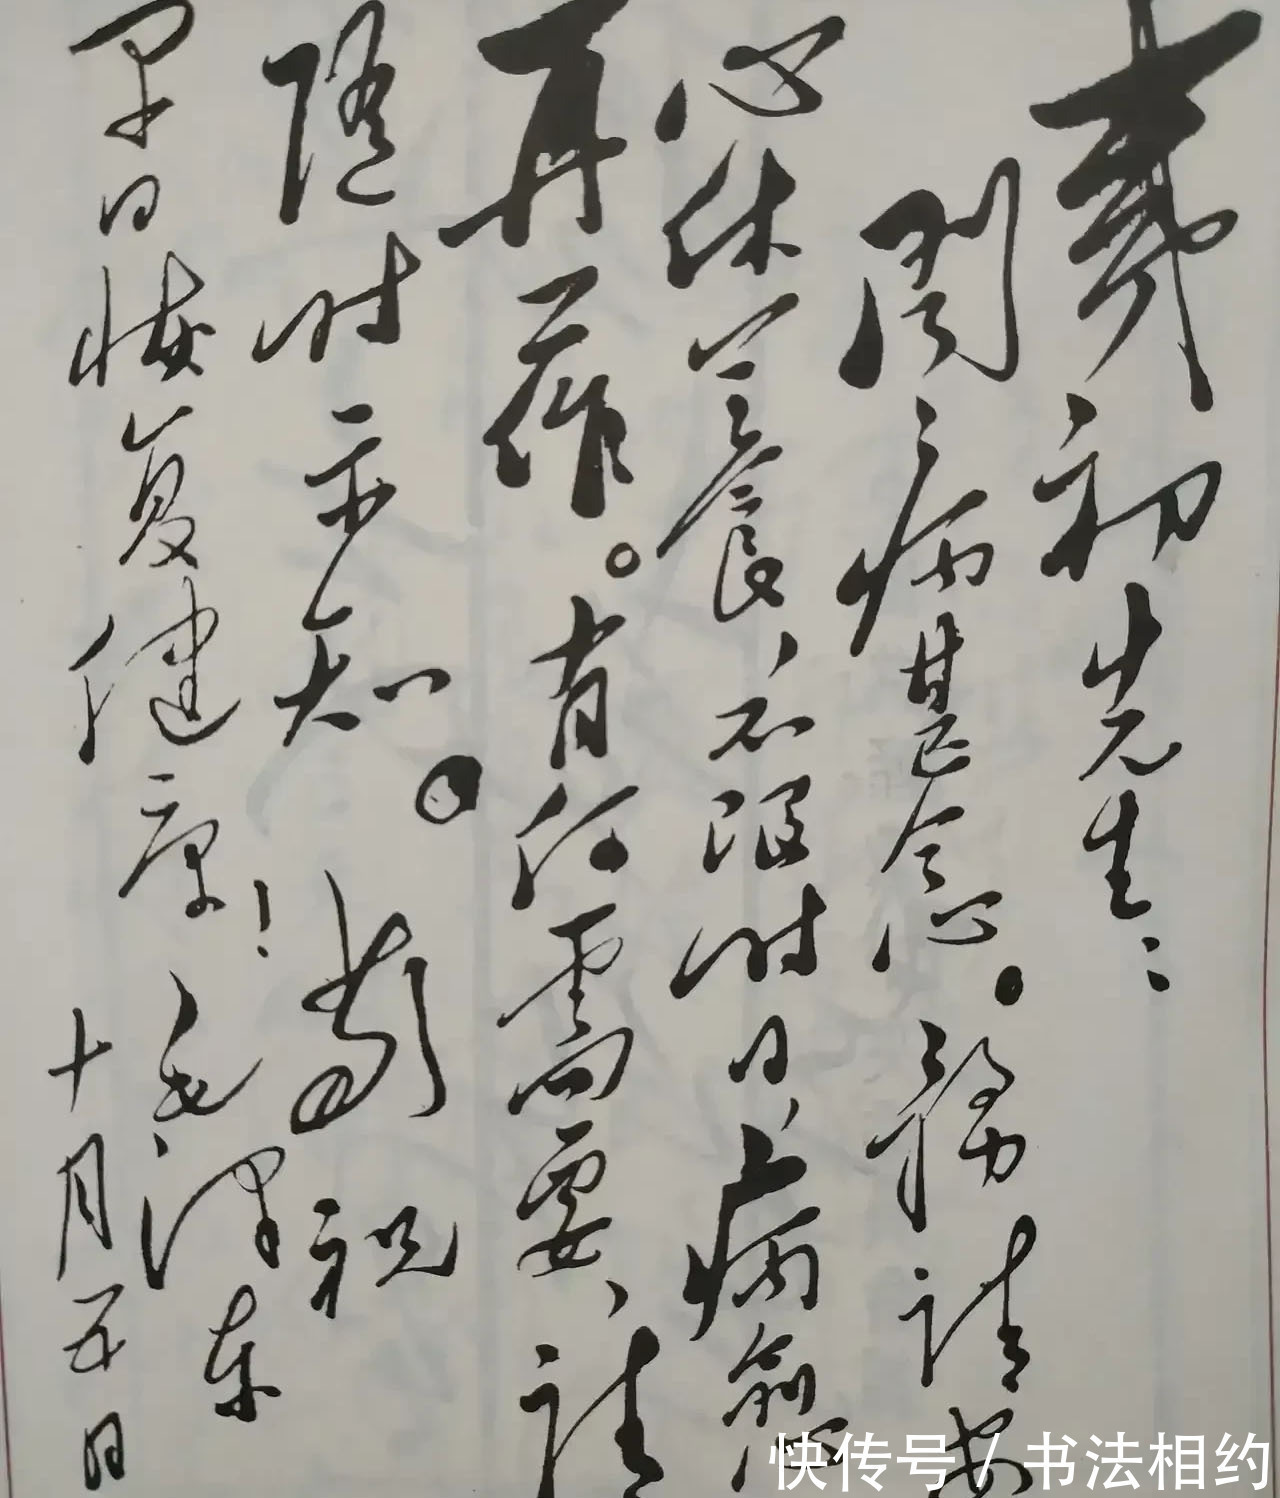 彝初先生：
闻病甚念。务请安
心休养，不限时日，病愈
再作。有何需要，请
随时示知。敬祝
早日恢复健康！
毛泽东
十月五日
快传号/书法相约